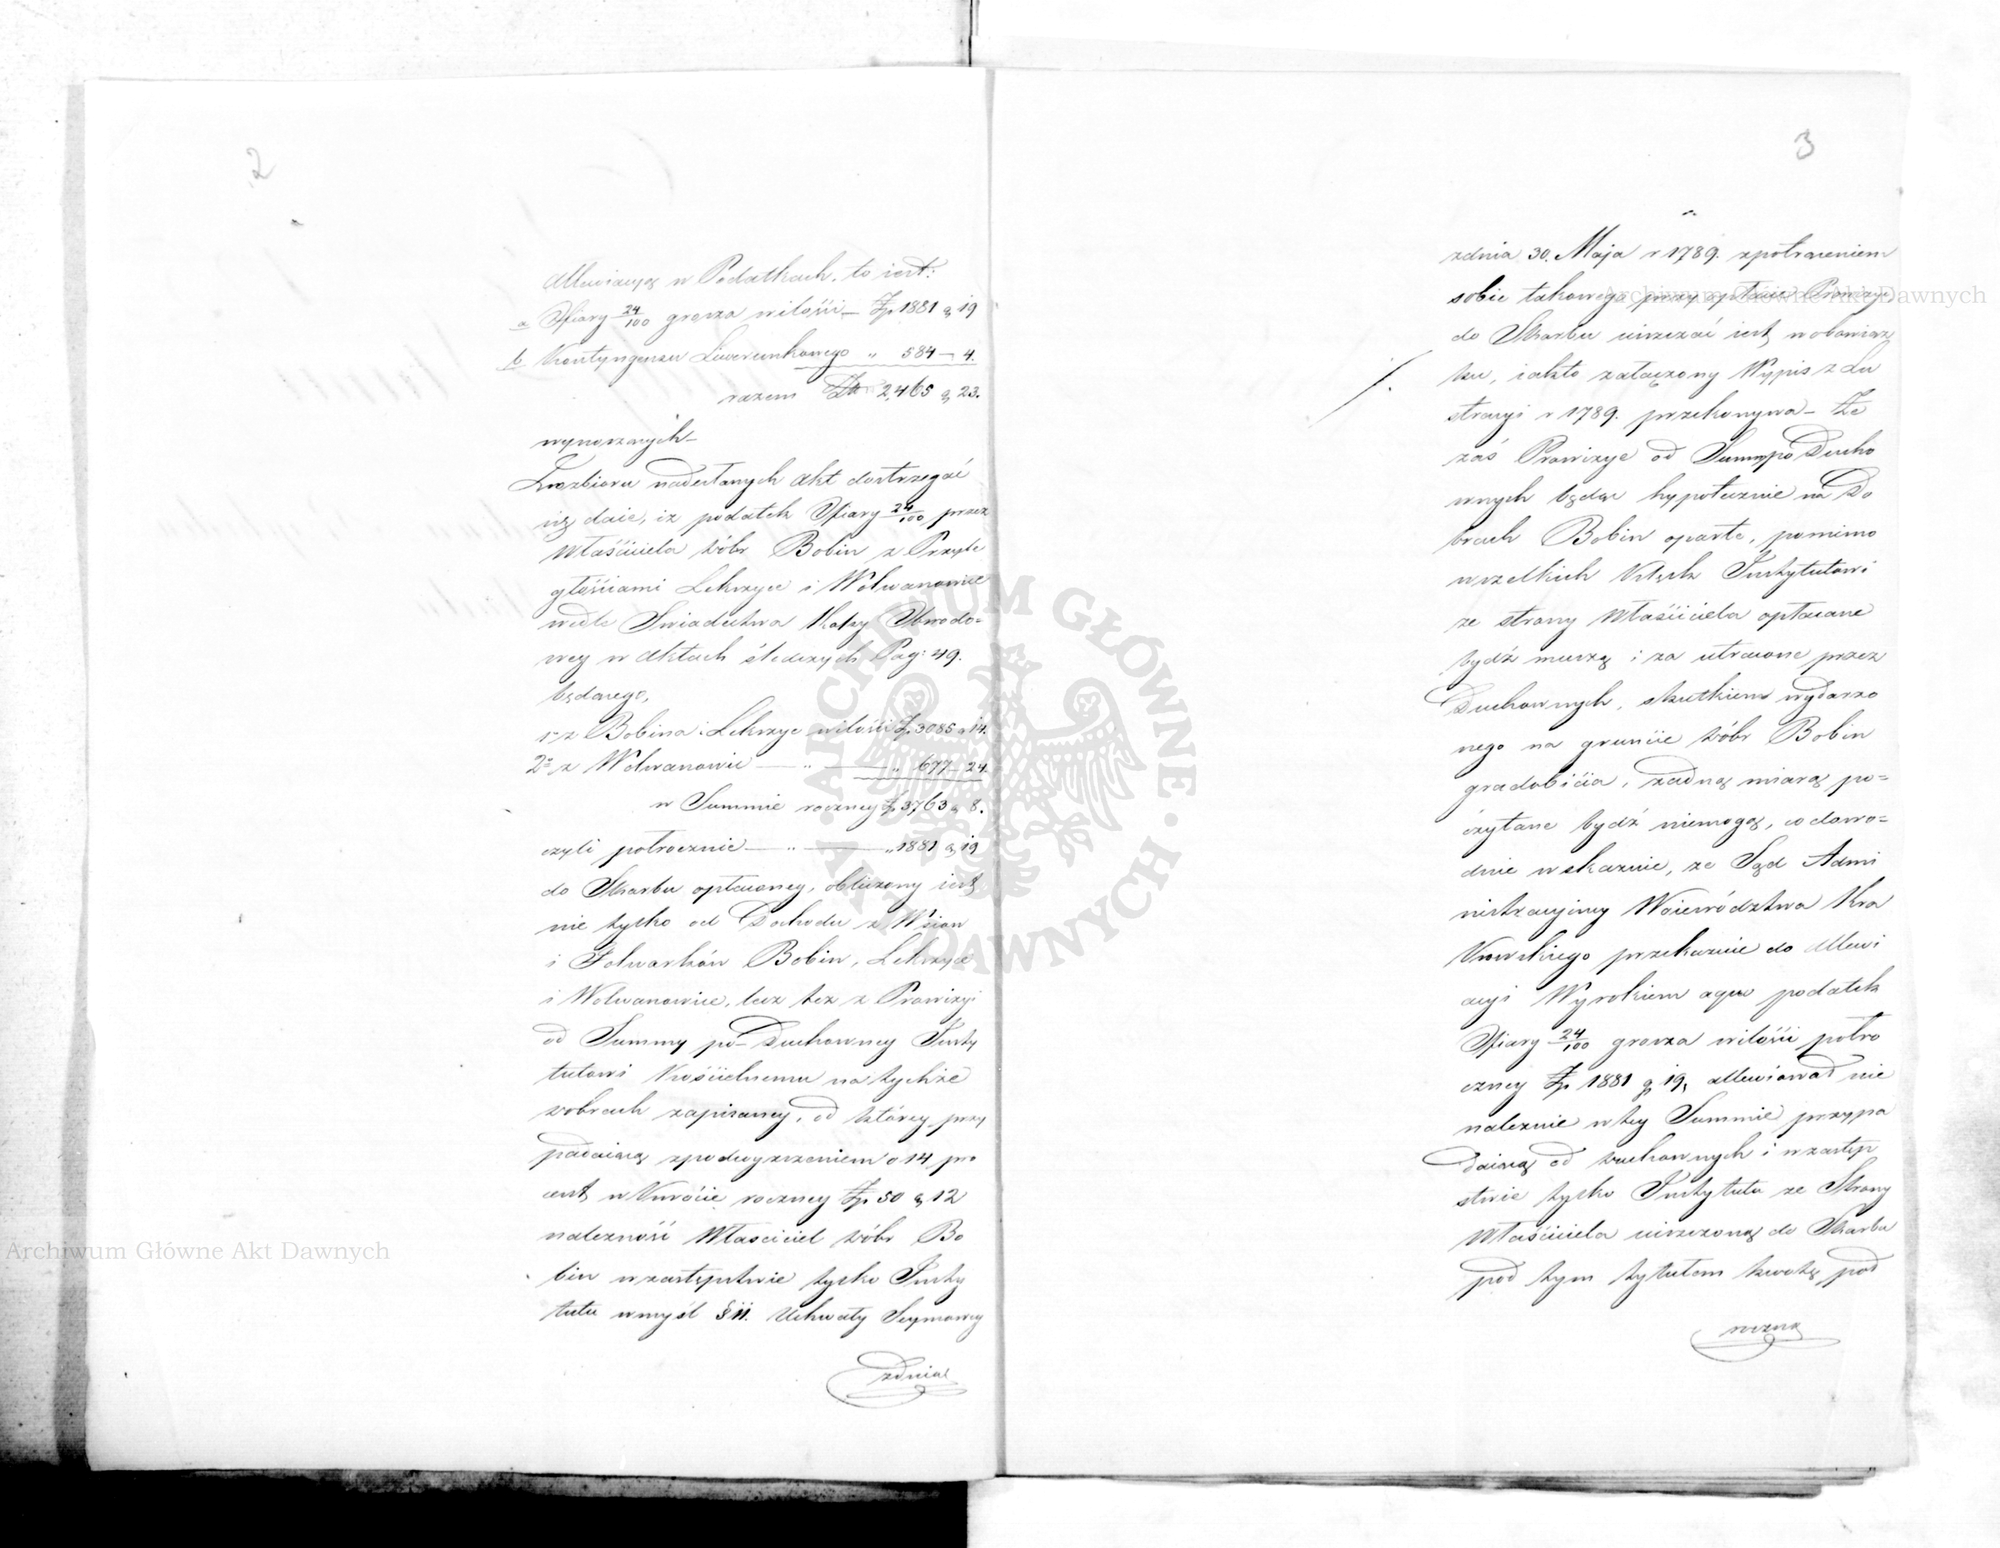 2
Allewiacyą w Podatkach, to iest:
a Ofiary 24/100 grosza wilości — Zp 1881 g 19
b. Kontyngensu Liwerunkowego „ 584 — 4.
razem Zp 2,465 g 23.
wynoszących —
Zwozbioru nadesłanych Akt dostrzegać
się daie, iż podatek Ofiary 24/100 przez
Właściciela dóbr Bobin z Przyle
głościami Lekszyce i Wolwanowice
wedle Swiadectwa Kassy Obwodo=
wey w Aktach śledczych Pag: 49.
będącego,
1° z Bobina i Lekszyc wilości Zp 3085 g 14.
2° z Wolwanowic — „ — „ 677 — 24.
w Summie roczney Zp 3763 g 8.
czyli połrocznie — „ — „ 1881 g 19
do Skarbu opłacony, obliczony iest
nie tylko od Dochodu z Wsiow
i Folwarków Bobin, Lekszyce
i Wolwanowice, lecz też z Prowizyi
od Summy po-Duchowney Insty
tutowi Kościelnemu na tychże
dobrach zapisaney, od którey przy
padaiącą zpodwyższeniem o 14 pro
cent w Kwocie roczney Zp 50 g 12
należność Własciciel dóbr Bo
bin wzastępstwie tylko Insty
tutu wmyśl § 11. Uchwały Seymowey
zdnia
3
zdnia 30. Maja r 1789. zpotrąceniem
sobie takowego przy opłacie Prowizyi
do Skarbu uiszczać iest wobowiąz
ku, iakto załączony Wypis z Lu
stracyi r 1789. przekonywa — Że
zaś Prowizye od Summ po Ducho
wnych będąc hypotecznie na Do
brach Bobin oparte, pomimo
wszelkich Klęsk Instytutowi
ze strony Właściciela opłacane
bydź muszą i za utracone przez
Duchownych, skutkiem wydarzo
nego na gruncie dóbr Bobin
gradobicia, żadną miarą po=
czytane bydź niemogą, co dowo=
dnie wskazuie, że Sąd Admi
nistracyjny Woiewództwa Kra
kowskiego przekazuie do Allewi
acyi Wyrokiem swym podatek
Ofiary 24/100 grosza wilości połro
czney Zp 1881 g 19, allewiował nie
należnie wtey Summie przypa
daiącą od duchownych i wzastęp
stwie tylko Instytutu ze Strony
Właściciela uiszczoną do Skarbu
pod tym tytułem kwotę pod
Archiwum Główne Akt Dawnych
Archiwum Główne Akt Dawnych
ARCHIWUM GŁÓWNE AKT DAWNYCH